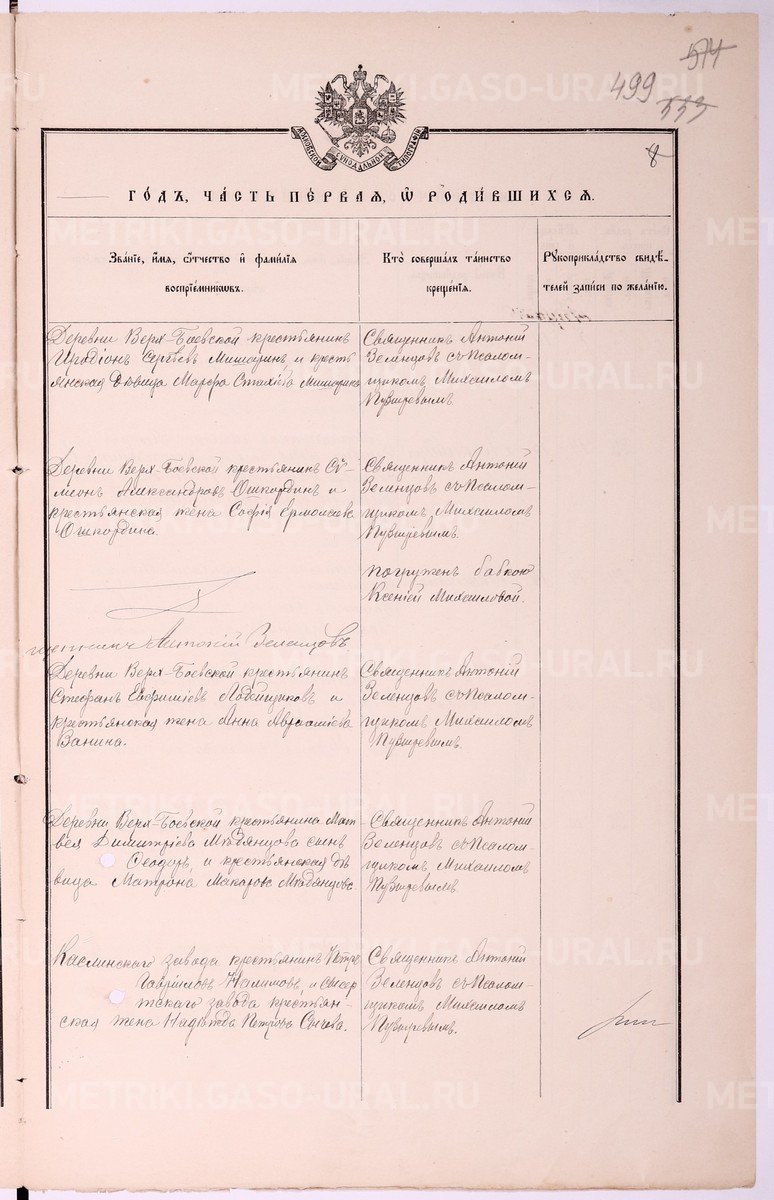 574
499
553
8
МОСКОВСКОЙ СѴНОДАЛЬНОЙ ТИПОГРАФІИ
ГО́ДЪ, ЧА́СТЬ ПЕ́РВАЯ, Ѡ РОДИ́ВШИХСЯ.
Зва́ніе, и́мя, ѻ́тчество и фами́лія
воспріе́мниковъ.
Кто̀ соверша́лъ та́инство
креще́нія.
Рꙋкоприкла́дство свидѣ́-
телей за́писи по жела́нію.
Деревни Верх-Боевской крестьянинъ
Иродіонъ Сергѣевъ Мишаринъ и кресть
янская дѣвица Марѳа Стахіева
Священникъ Антоній
Зеленцовъ съ Псалом-
щикомъ Михаиломъ
Пузыревымъ.
Деревни Верх-Боевской крестьянинъ Си-
меонъ Александровъ Ошкординъ и
крестьянская жена Софія Ермолаева
Ошкордина.
Священникъ Антоній
Зеленцовъ съ Псалом-
щикомъ Михаиломъ
Пузыревымъ.
Погруженъ бабкою
Ксеніей Михаиловой.
Антоній Зеленцовъ
Деревни Верх-Боевской крестьянинъ
Стефанъ Лобейщиковъ и
крестьянская жена Анна Авраамiева
Ванина.
Священникъ Антоній
Зеленцовъ съ Псалом-
щикомъ Михаиломъ
Пузыревымъ.
Деревни Верх-Боевской крестьянина Мат
вея Димитріева Младянцова сынъ
Ѳеодоръ, и крестьянская дѣ
вица Матрона Макарова Младянцова
Священникъ Антоній
Зеленцовъ съ Псалом-
щикомъ Михаиломъ
Пузыревымъ.
Каслинскаго завода крестьянинъ Петръ
Гавріиловъ Налимовъ, и Сысер
тскаго завода крестьян-
ская жена Надежда Петрова Сычева.
Священникъ Антоній
Зеленцовъ съ Псалом-
щикомъ Михаиломъ
Пузыревымъ.
METRIKI.GASO-URAL.RU